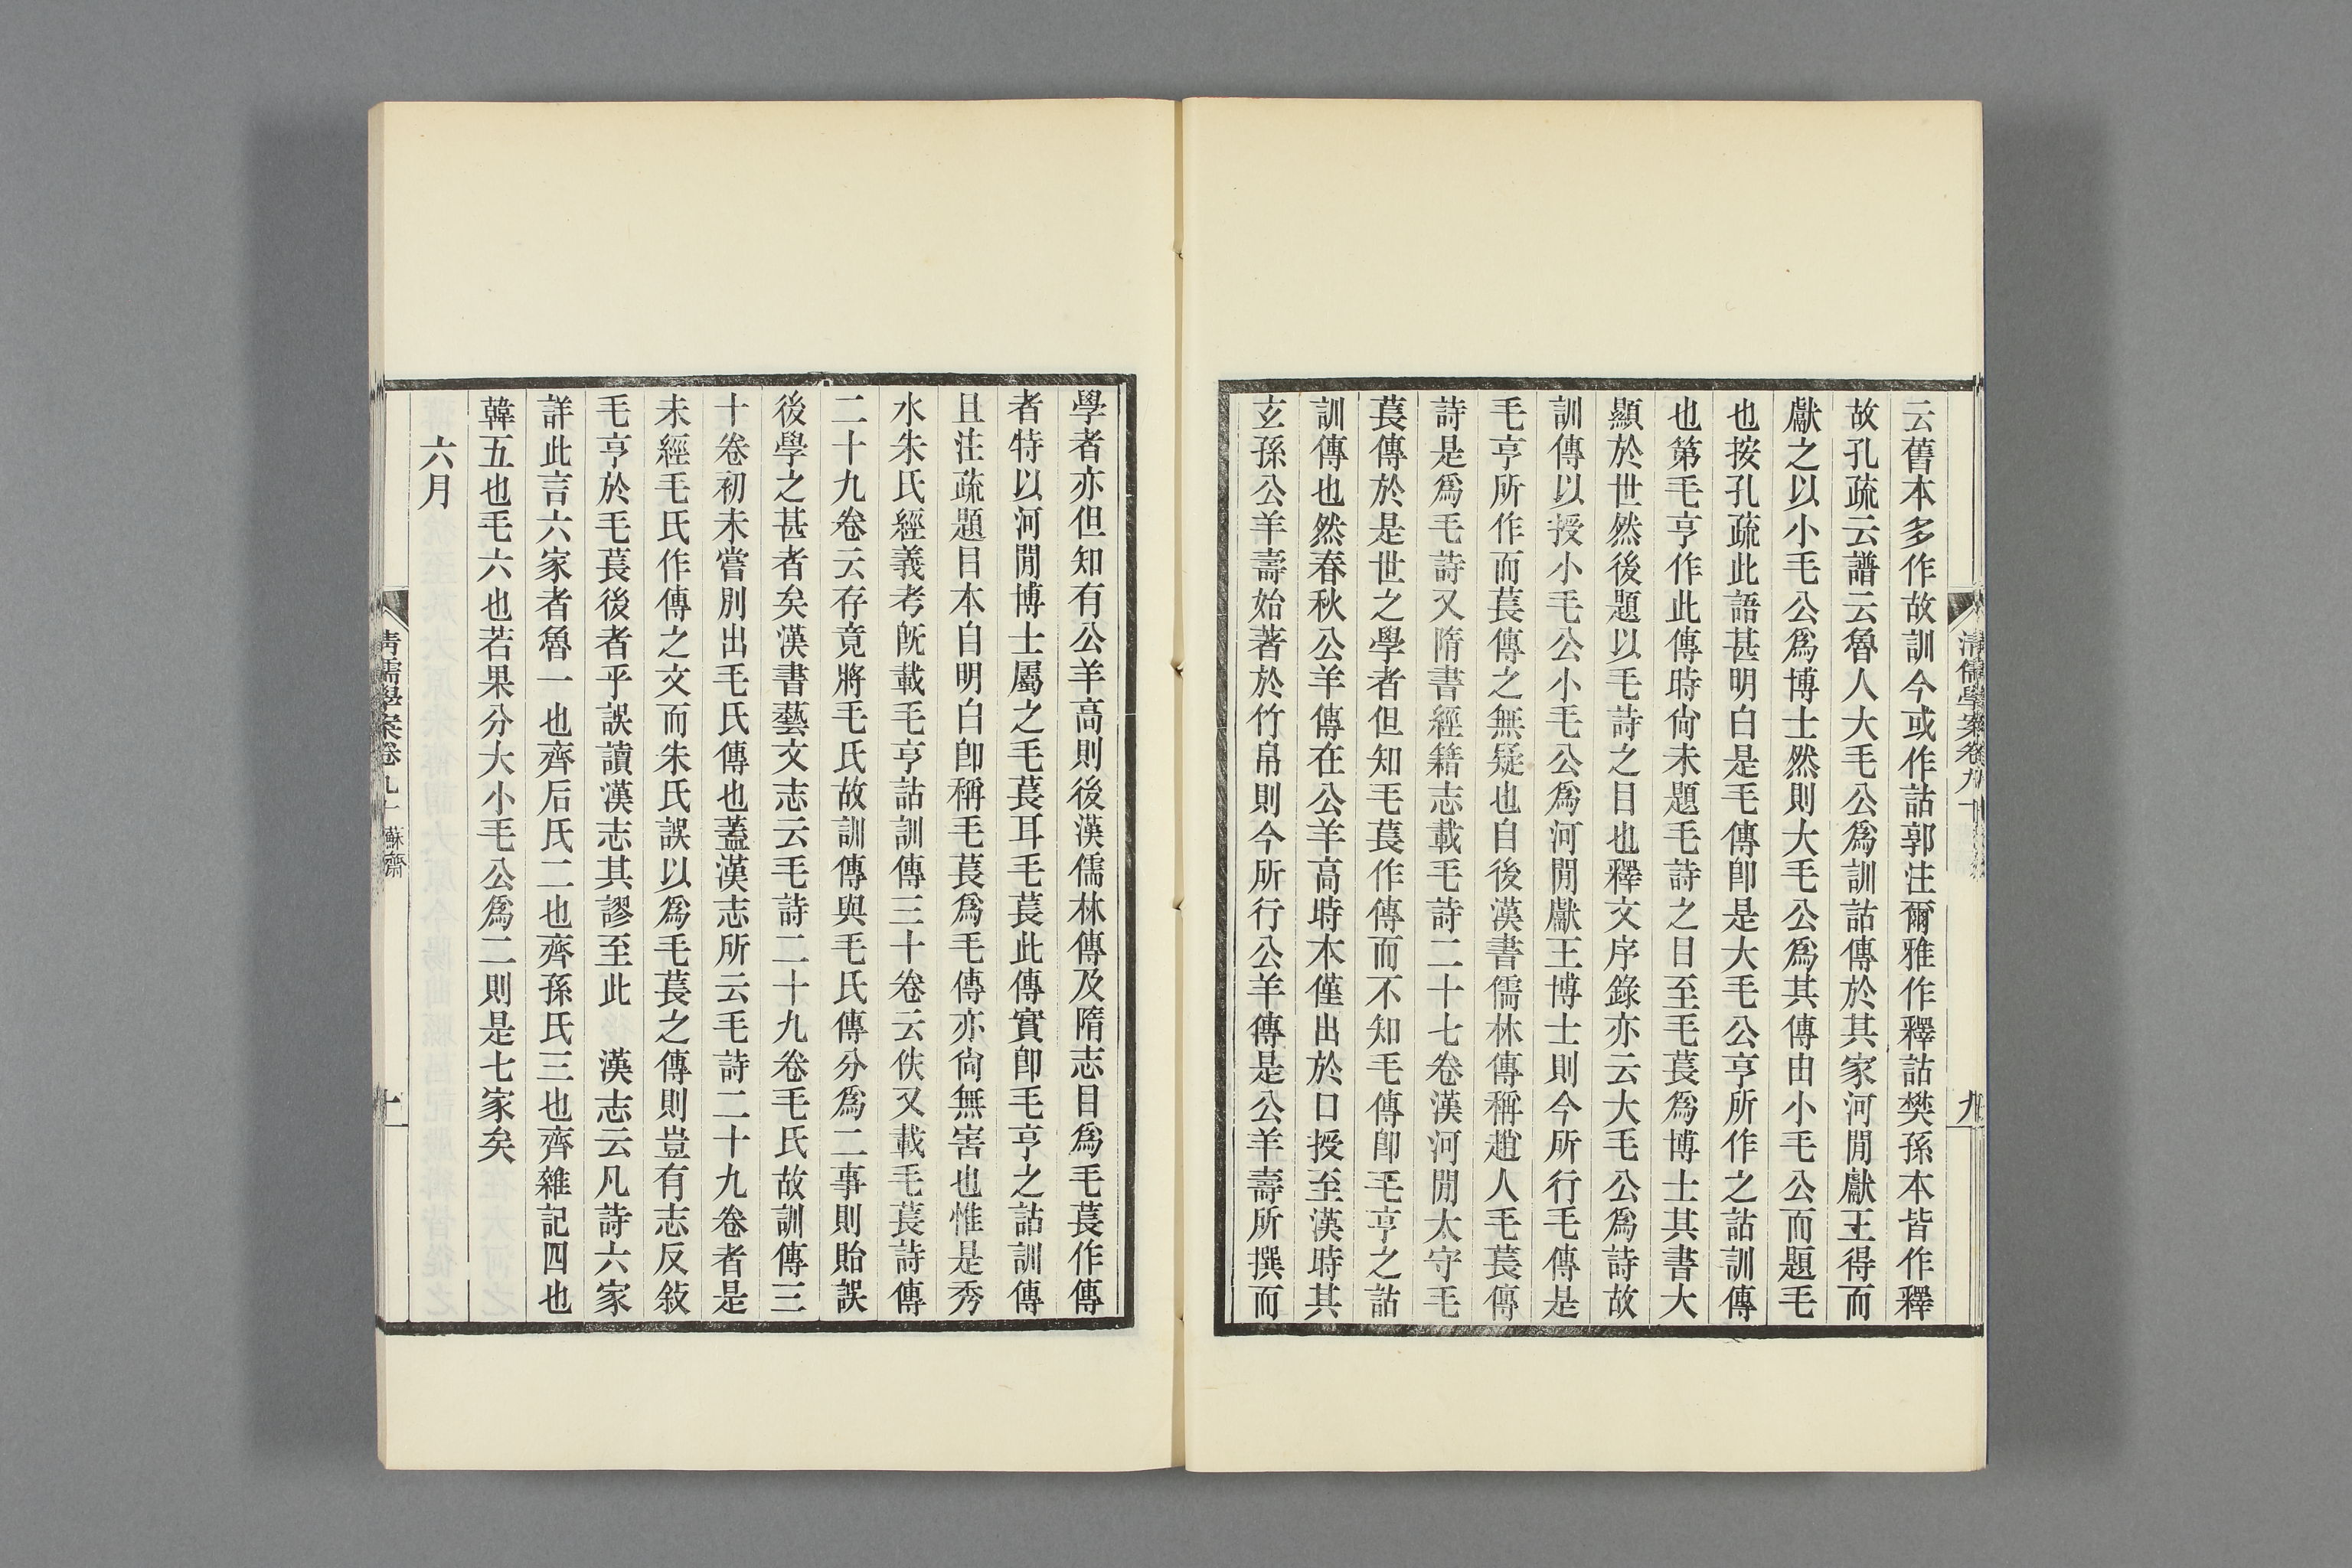 云舊本多作故訓今或作詁郭注爾雅作釋詁樊孫本皆作釋
故孔疏云譜云魯人大毛公爲訓詁傳於其家河閒獻王得而
獻之以小毛公爲博士然則大毛公爲其傳由小毛公而題毛
也按孔疏此語甚明白是毛傳卽是大毛公亨所作之詁訓傳
也第毛亨作此傳時尙未題毛詩之目至毛萇爲博士其書大
顯於世然後題以毛詩之目也釋文序錄亦云大毛公爲詩故
訓傳以授小毛公小毛公爲河閒獻王博士則今所行毛傳是
毛亨所作而萇傳之無疑也自後漢書儒林傳稱趙人毛萇傳
詩是爲毛詩又隋書經籍志載毛詩二十七卷漢河閒太守毛
萇傳於是世之學者但知毛萇作傳而不知毛傳卽毛亨之詁
訓傳也然春秋公羊傳在公羊高時本僅出於口授至漢時其
玄孫公羊壽始著於竹帛則今所行公羊傳是公羊壽所撰而
清儒學案卷九十
九
學者亦但知有公羊高則後漢儒林傳及隋志目爲毛萇作傳
者特以河閒博士屬之毛萇耳毛萇此傳實卽毛亨之詁訓傳
且注疏題目本自明白卽稱毛萇爲毛傳亦尙無害也惟是秀
水朱氏經義考旣載毛亨詁訓傳三十卷云佚又載毛萇詩傳
二十九卷云存竟將毛氏故訓傳與毛氏傳分爲二事則貽誤
後學之甚者矣漢書藝文志云毛詩二十九卷毛氏故訓傳三
十卷初未嘗別出毛氏傳也蓋漢志所云毛詩二十九卷者是
未經毛氏作傳之文而朱氏誤以爲毛萇之傳則豈有志反敍
毛亨於毛萇後者乎誤讀漢志其謬至此　漢志云凡詩六家
詳此言六家者魯一也齊后氏二也齊孫氏三也齊雜記四也
韓五也毛六也若果分大小毛公爲二則是七家矣
六月
清儒學案卷九十 蘇齋
十